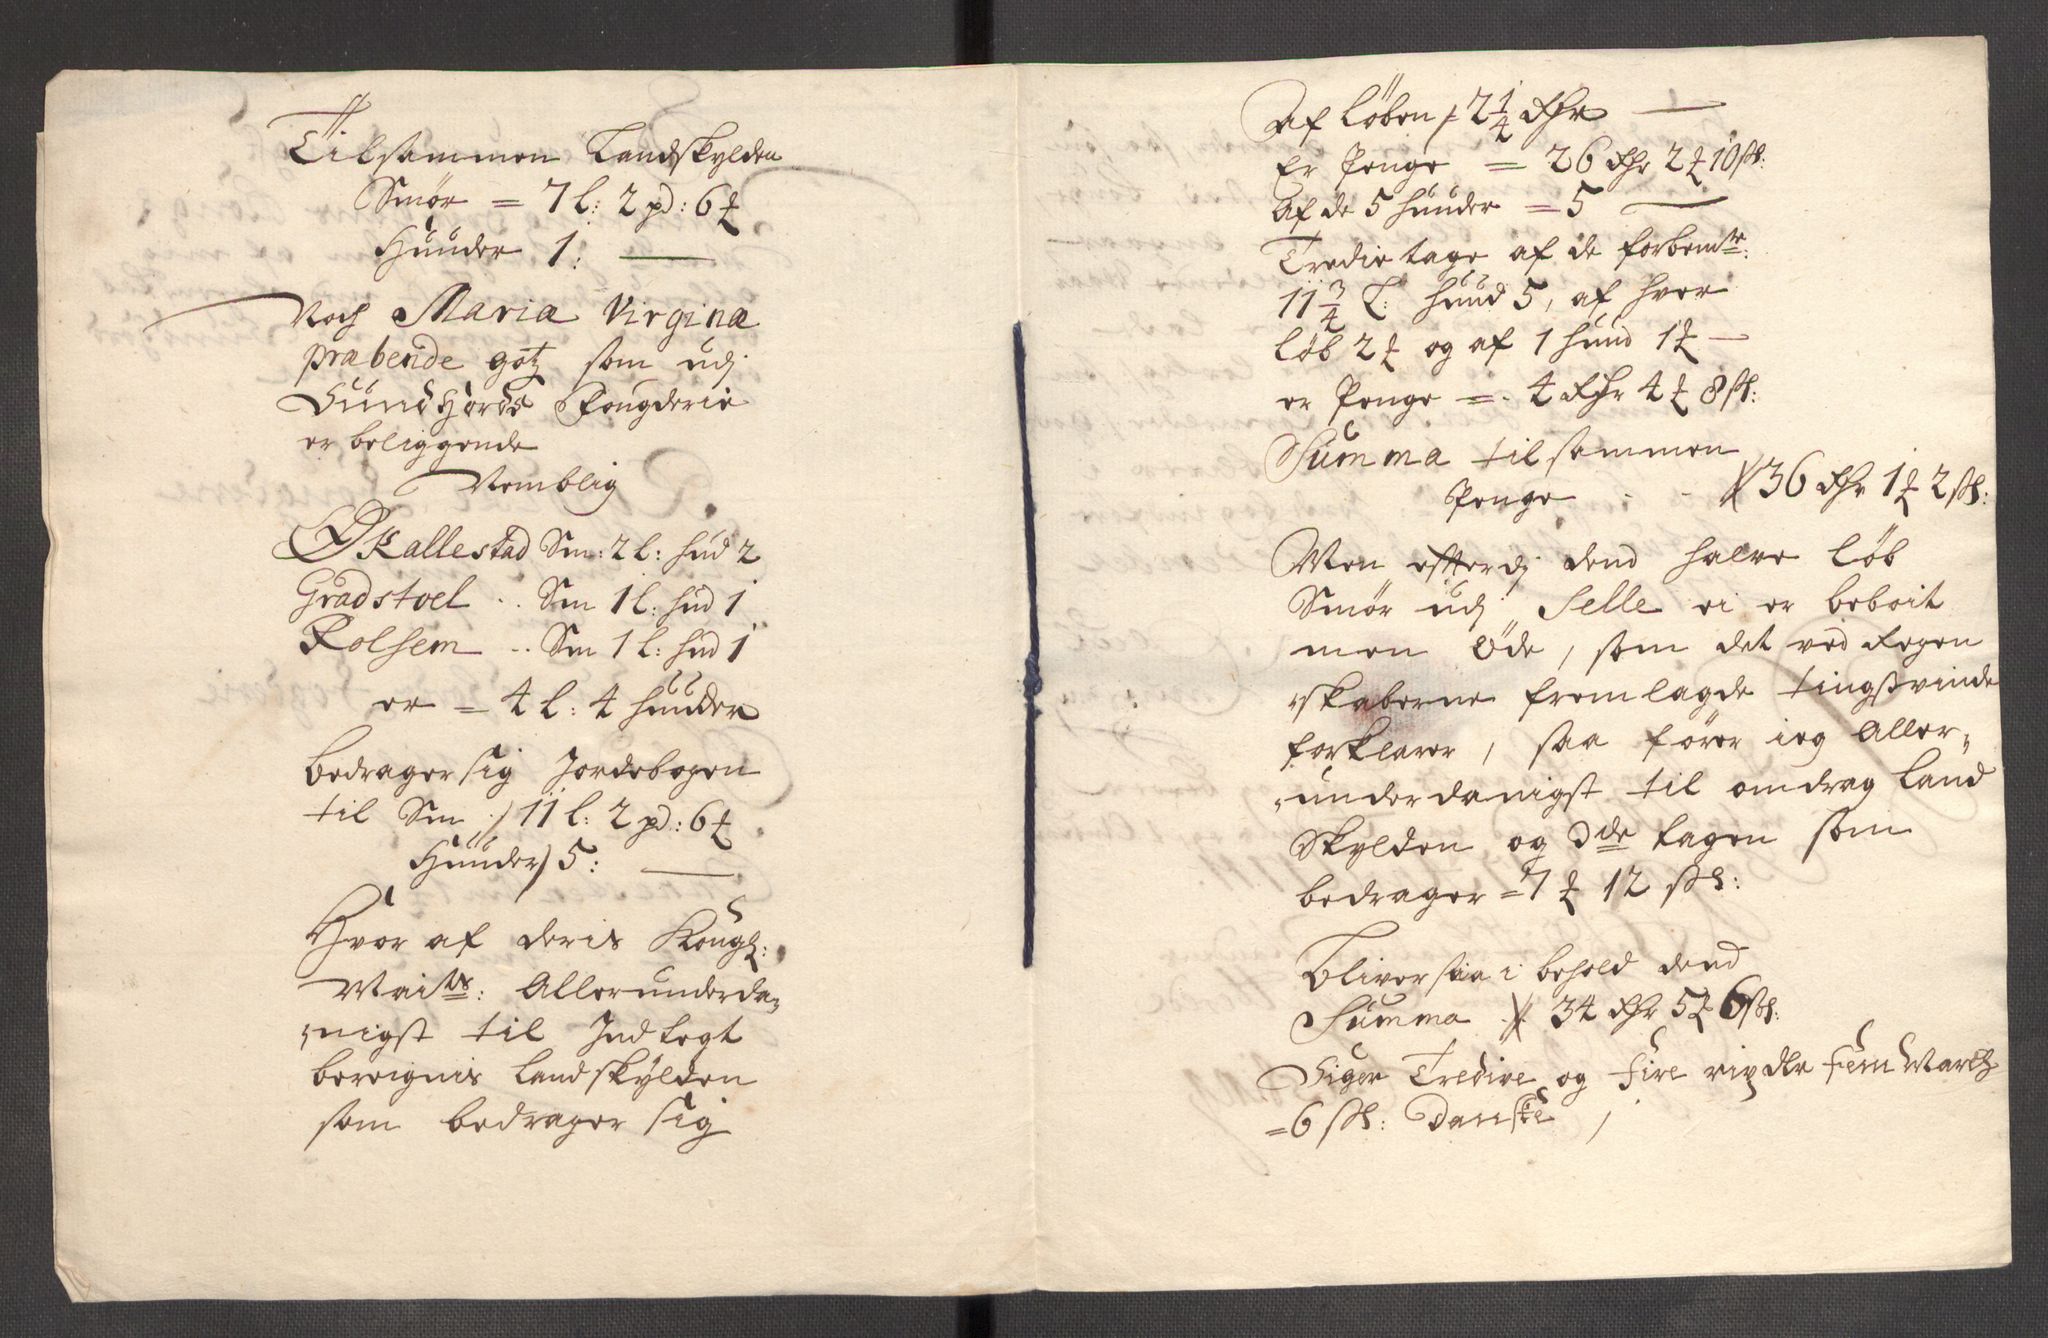 Tilsammen Landskylden
Smør = 7 l: 2 pd: 6 ℔
Huuder 1:
Noch Mariæ Virginæ
præbende gotz som udj
Sundhords Fougderie
er beliggende
Nemblig
Økallestad Sm: 2 l: hud 2
Gradstoel .. Sm 1 l: hud 1
Rolsem .. Sm 1 l: hud 1
er = 4 l: 4 huuder
bedrager sig Jordebogen
til Sm / 11 l: 2 pd: 6 ℔
Huuder / 5:
Hvor af deris Kongl:
Maits: Allerunderda-
nigst til Indtegt
bereignis Landskylden
som bedrager sig
Af løben / 2 1/4 Rdr
Er Penge = 26 Rdr 2 ℔ 10 ss:
Af de 5 huuder = 5
Tredie tage af de forbemte:
11 3/4 l: huud 5, af hver
løb 2 ℔ og af 1 huud 1 ℔
er Penge = 4 Rdr 4 ℔ 8 ss:
Summa til sammen
Penge - - 36 Rdr 1 ℔ 2 ss:
Men efterdj dend halve løb
Smør udj Selle ei er beboit
men øde, som det ved Regen
skaberne fremlagde tingsvinde
forklarer, saa fører ieg Aller-
underdanigst til omdrag Land
Skylden og 3de tagen som
bedrager = 7 ℔ 12 ss:
Bliver saa i behold dend
Summa 34 Rdr 5 ℔ 6 ss:
Siger Tredive og fire rix dlr fem March
= 6 ss: Danske /